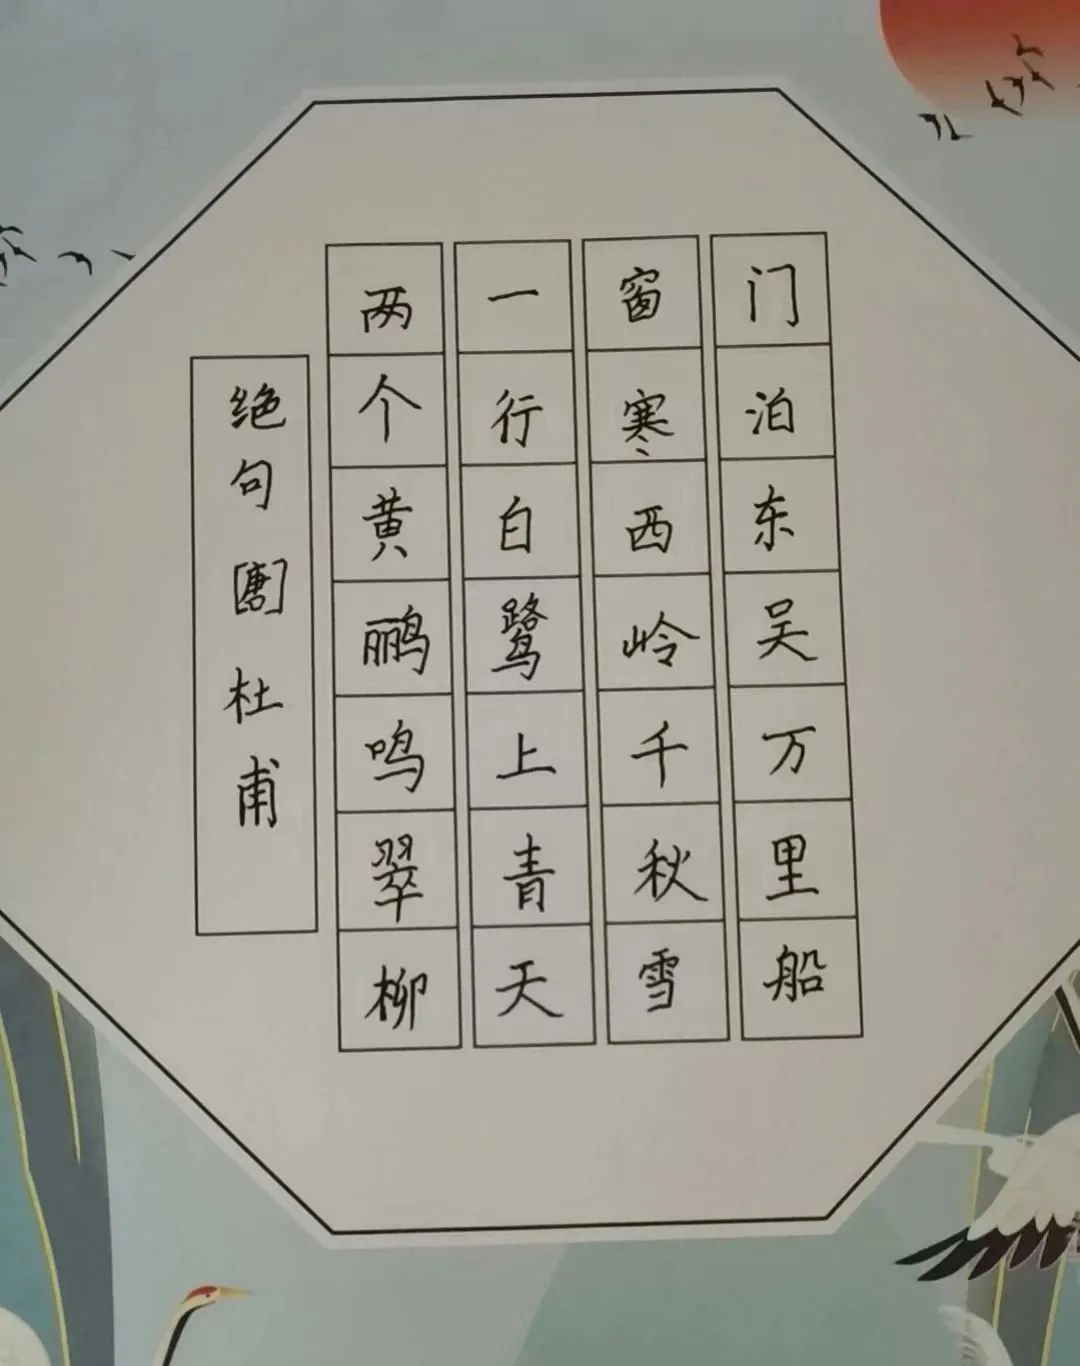 绝句[唐]杜甫
两个黄鹂鸣翠柳
一行白鹭上青天
窗寒西岭千秋雪
门泊东吴万里船